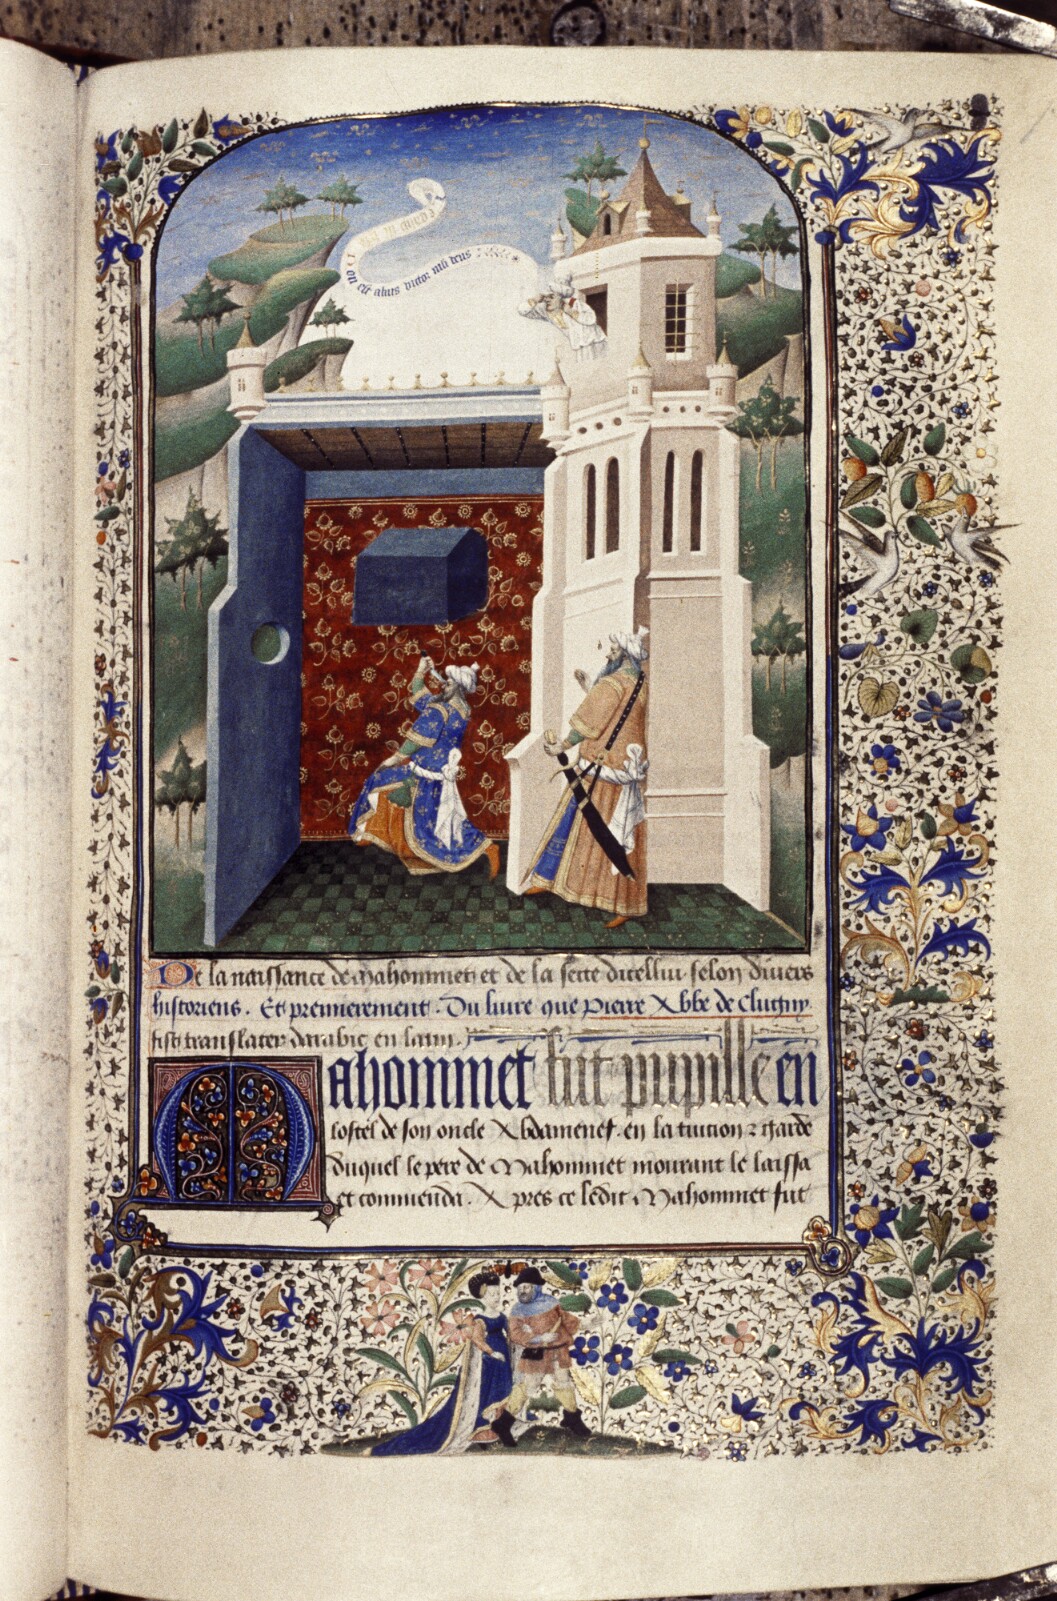 non est alius victor nisi deus
De la naissance de mahommet et de la secte dicellui selon divers
historiens. Et premierement. Du livre que Pierre Abbe de Clugny
fist translater darabic en latin.
Mahommet fut pupille en
lostel de son oncle Abdamenef. en la tuition ⁊ garde
duquel le pere de Mahommet mourant le laissa
et commenda. Apres ce ledit Mahommet fut